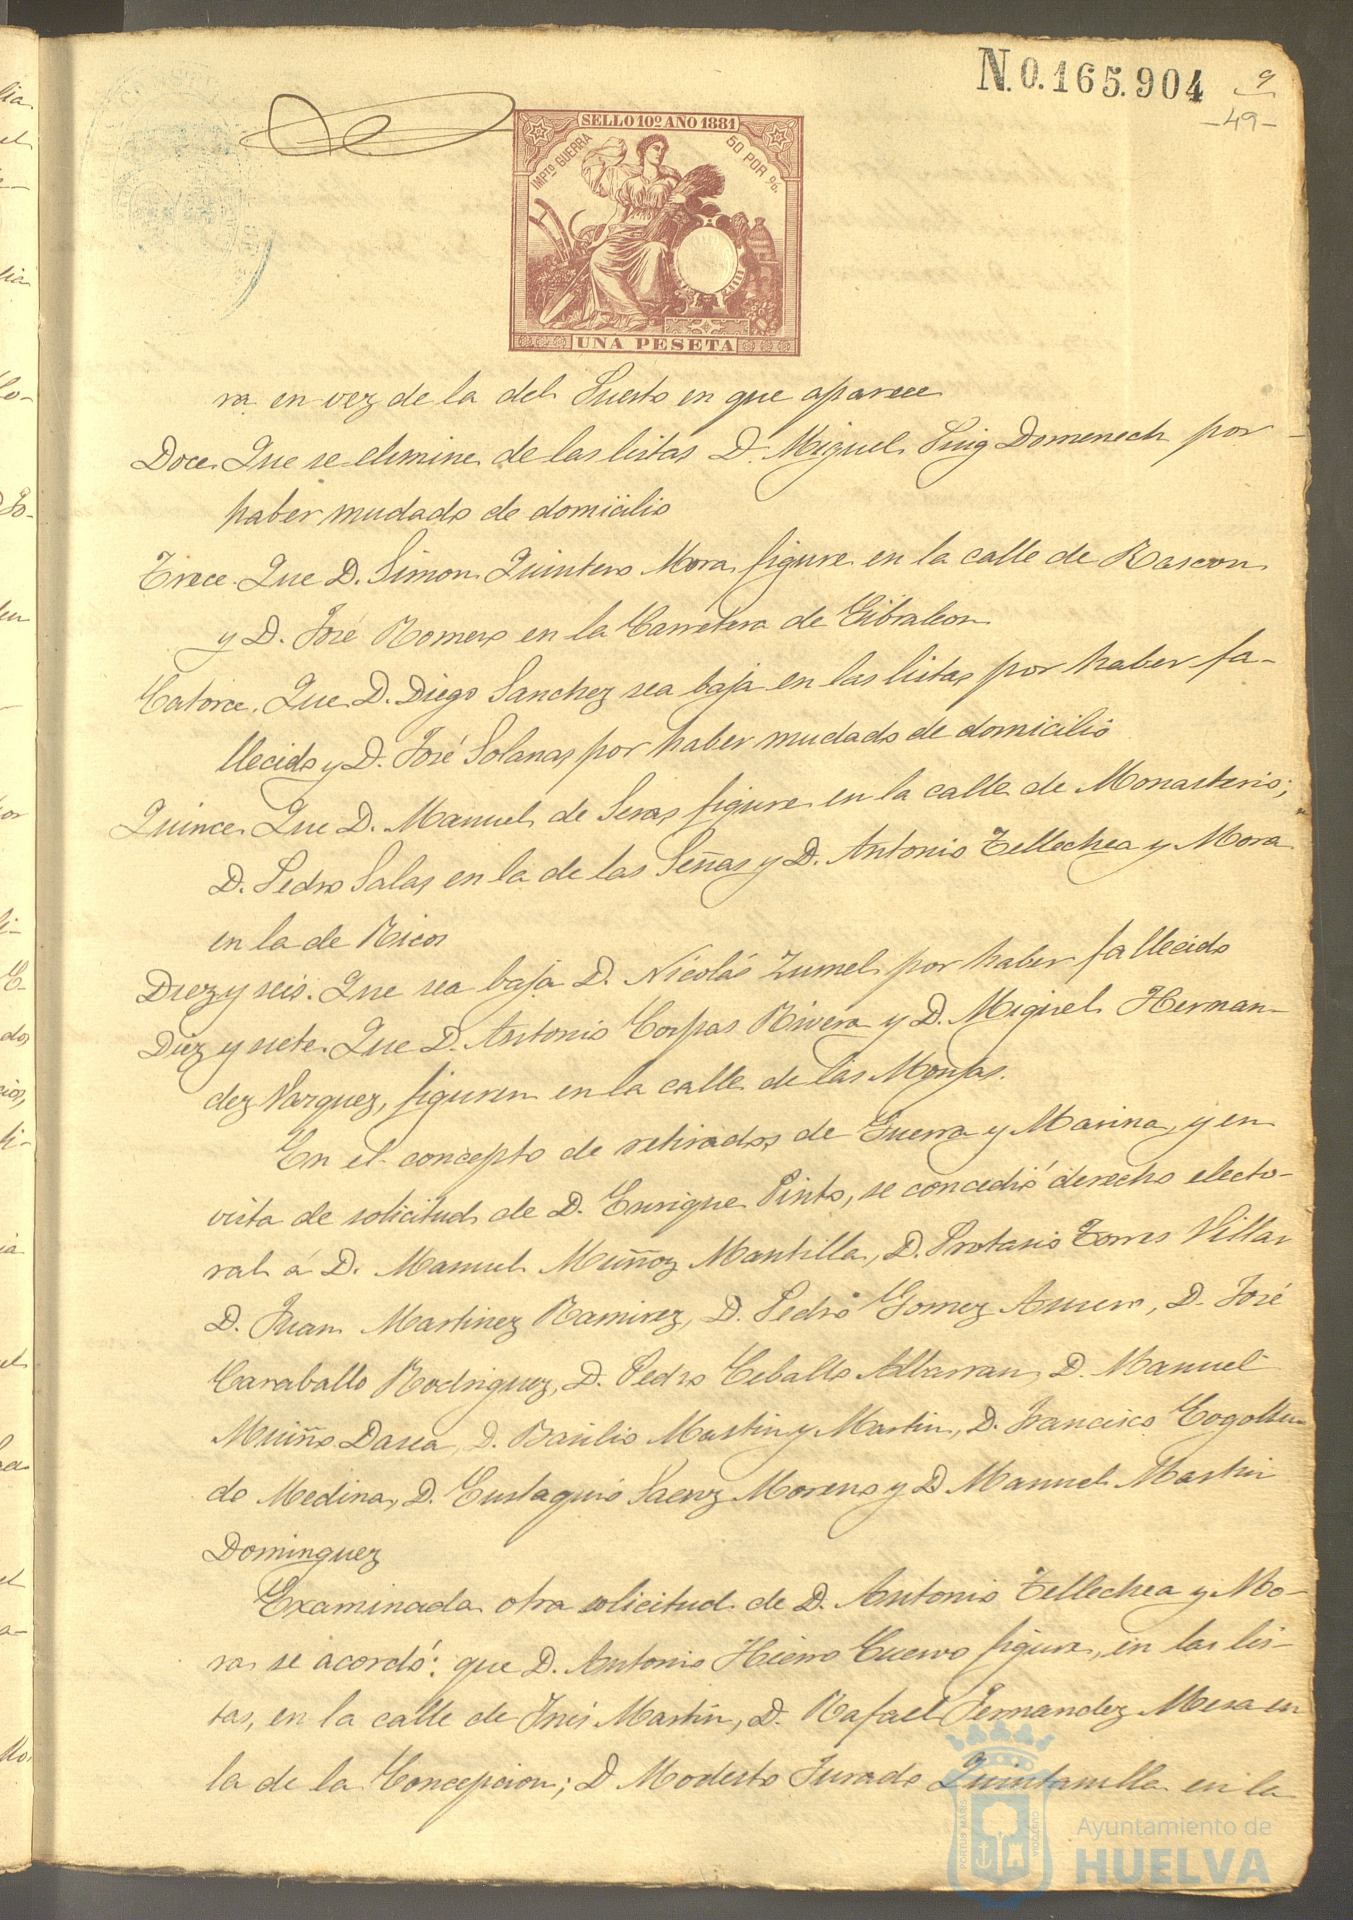 N.0.165.904
9
-49-
SELLO 10º AÑO 1881
IMPTO GUERRA
50 POR %.
UNA PESETA
ra en vez de la del Puerto en que aparece
Doce. Que se elimine de las listas D. Miguel Puig Domenech por
haber mudado de domicilio
Trece. Que D. Simon Quintero Mora figure en la calle de Rascon
y D. José Romero en la Carretera de Gibraleon
Catorce. Que D. Diego Sanchez sea baja en las listas por haber fa-
llecido y D. José Solanas por haber mudado de domicilio
Quince. Que D. Manuel de Seras figure en la calle de Monasterio;
D. Pedro Salas en la de las Señas y D. Antonio Tellechea y Mora
en la de Ricos
Diez y seis. Que sea baja D. Nicolás Zumel por haber fallecido
Diez y siete. Que D. Antonio Corpas Rivera y D. Miguel Hernan-
dez Vazquez, figuren en la calle de las Monjas.
En el concepto de retirados de Guerra y Marina, y en
vista de solicitud de D. Enrique Pinto, se concedió derecho electo-
ral á D. Manuel Muñoz Mantilla, D. Protasio Torres Villar
D. Juan Martinez Ramirez, D. Pedro Gomez D. José
Caraballo Rodriguez, D. Pedro Ceballo Albarran, D. Manuel
Muiño D. Basilio Martin y Martin, D. Francisco Cogollu-
do Medina, D. Eustaquio Saenz Moreno y D. Manuel Martin
Dominguez
Examinada otra solicitud de D. Antonio Tellechea y Mo-
ra, se acordó: que D. Antonio Hierro Cuervo figure, en las lis-
tas, en la calle de Inés Martin, D. Rafael Fernandez Mesa en
la de la Concepcion; D. Modesto Jurado Quintanilla en la
PORTUS MARIS
CUSTODIA
Ayuntamiento de
HUELVA